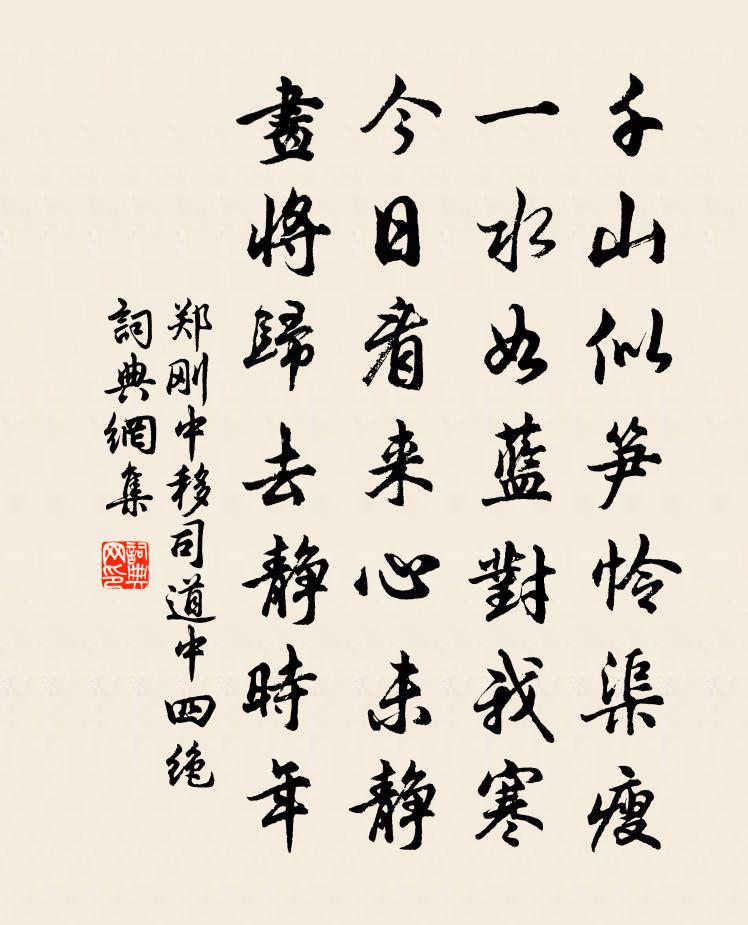 千山似笋怜渠瘦
一水如藍對我寒
今日看来心未静
畫将歸去静時年
郑刚中移司道中四绝
詞典網集
詞典网印